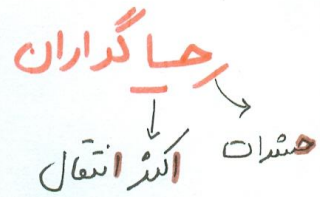 حسا گداران
حشرات
اکثر انتقال